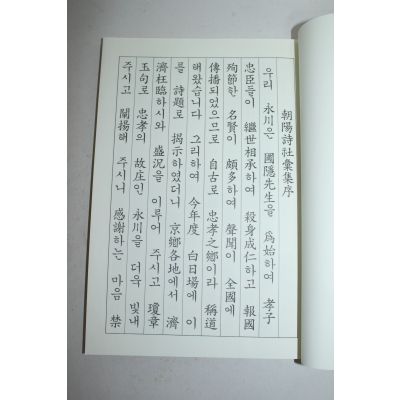 朝陽詩社彙集序
우리 永川은 國隱先生을 爲始하여 孝子
忠臣들이 繼世相承하여 殺身成仁하고 報國
殉節한 名賢이 頗多하여 聲聞이 全國에
傳播되었으므로 自古로 忠孝之鄕이라 稱道
해왔습니다 그리하여 今年度 白日場에 이
를 詩題로 揭示하였더니 京鄕各地에서 濟
濟枉臨하시와 盛況을 이루어 주시고 瓊章
玉句로 忠孝의 故庄인 永川을 더욱 빛내
주시고 闡揚해 주시니 感謝하는 마음 禁